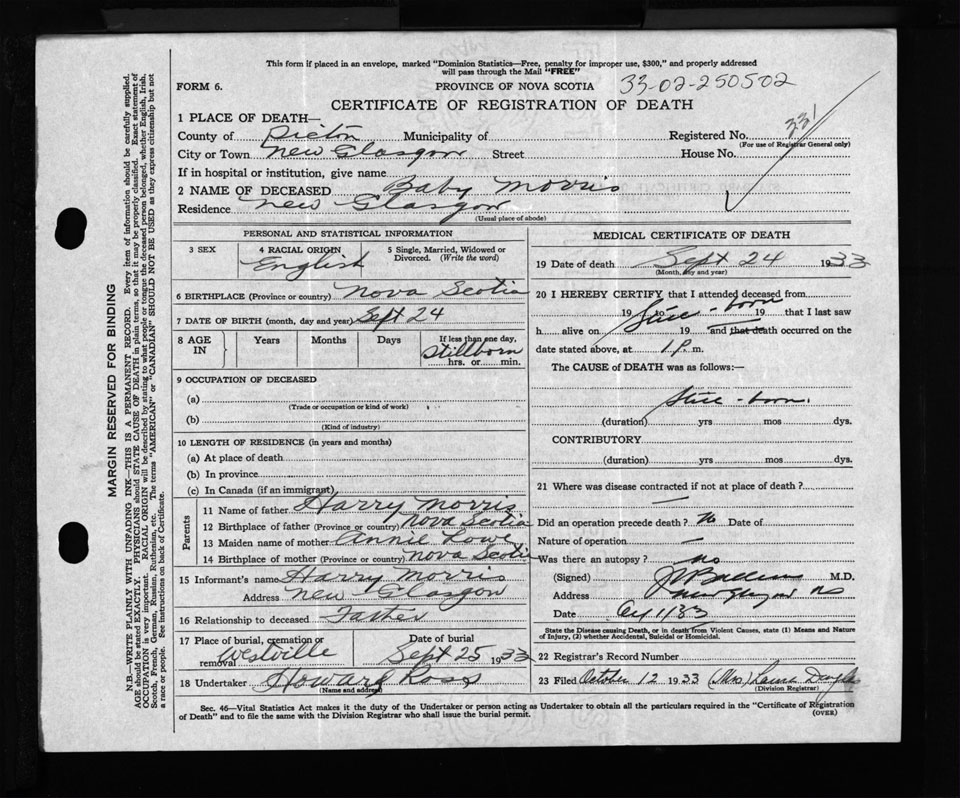 This form if placed in an envelope, marked "Dominion Statistics—Free, penalty for improper use, $300," and properly addressed
will pass through the Mail "FREE"
FORM 6.
PROVINCE OF NOVA SCOTIA 33-02-250502
CERTIFICATE OF REGISTRATION OF DEATH
1 PLACE OF DEATH—
County of Pictou Municipality of Registered No. 331
(For use of Registrar General only)
City or Town New Glasgow Street House No.
If in hospital or institution, give name
2 NAME OF DECEASED Baby Morris
Residence New Glasgow
(Usual place of abode)
PERSONAL AND STATISTICAL INFORMATION
3 SEX 4 RACIAL ORIGIN 5 Single, Married, Widowed or Divorced. (Write the word)
English
6 BIRTHPLACE (Province or country) Nova Scotia
7 DATE OF BIRTH (month, day and year) Sept 24
8 AGE IN Years Months Days If less than one day,
Stillborn
hrs. or min.
9 OCCUPATION OF DECEASED
(a)
(Trade or occupation or kind of work)
(b)
(Kind of industry)
10 LENGTH OF RESIDENCE (in years and months)
(a) At place of death
(b) In province
(c) In Canada (if an immigrant)
Parents
11 Name of father Harry Morris
12 Birthplace of father (Province or country) Nova Scotia
13 Maiden name of mother Annie Lowe
14 Birthplace of mother (Province or country) Nova Scotia
15 Informant's name Harry Morris
Address New Glasgow
16 Relationship to deceased Father
17 Place of burial, cremation or removal Westville
Date of burial Sept 25 1933
18 Undertaker Howard Ross
(Name and address)
MEDICAL CERTIFICATE OF DEATH
19 Date of death Sept 24 1933
(Month, day and year)
20 I HEREBY CERTIFY that I attended deceased from
19 to 19 that I last saw
Still-born
h alive on 19 and that death occurred on
date stated above, at 1 P. m.
The CAUSE of DEATH was as follows:—
Still-born.
(duration) yrs mos dys.
CONTRIBUTORY
(duration) yrs mos dys.
21 Where was disease contracted if not at place of death?
—
Did an operation precede death? No Date of
Nature of operation —
Was there an autopsy? No
(Signed) M.D.
Address New Glasgow NS
Date Oct 11 33
State the Disease causing Death, or in death from Violent Causes, state (1) Means and Nature
of Injury, (2) whether Accidental, Suicidal or Homicidal.
22 Registrar's Record Number
23 Filed October 12 1933 (Mrs) Laura
(Division Registrar)
Sec. 46—Vital Statistics Act makes it the duty of the Undertaker or person acting as Undertaker to obtain all the particulars required in the "Certificate of Registration
of Death" and to file the same with the Division Registrar who shall issue the burial permit.
(OVER)
MARGIN RESERVED FOR BINDING
N.B.—WRITE PLAINLY WITH UNFADING INK—THIS IS A PERMANENT RECORD. Every item of information should be carefully supplied.
AGE should be stated EXACTLY. PHYSICIANS should STATE CAUSE OF DEATH in plain terms, so that it may be properly classified. Exact statement of
OCCUPATION is very important. RACIAL ORIGIN will be described by stating to what people or tongue the deceased person belonged, whether English, Irish,
Scotch, French, German, Russian, Ruthenian, etc. The terms "AMERICAN" or "CANADIAN" SHOULD NOT BE USED as they express citizenship but not
a race or people. See instructions on back of Certificate.